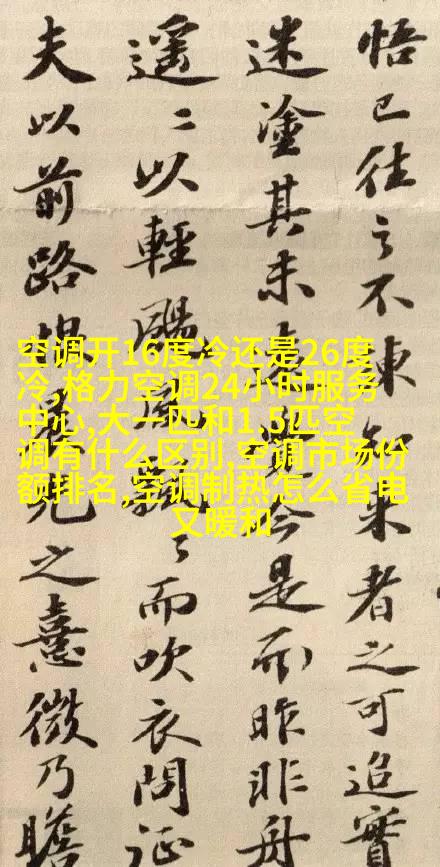 悟已往之不諫知来者之可追實
迷塗其未遠覺今是而昨非舟
遥〻以輕颺風飄〻而吹衣問征
夫以前路恨晨光之熹微乃瞻
空调开16度冷还是26度
冷,格力空调24小时服务
中心,大一匹和1.5匹空
调有什么区别,空调市场份
额排名,空调制热怎么省电
又暖和